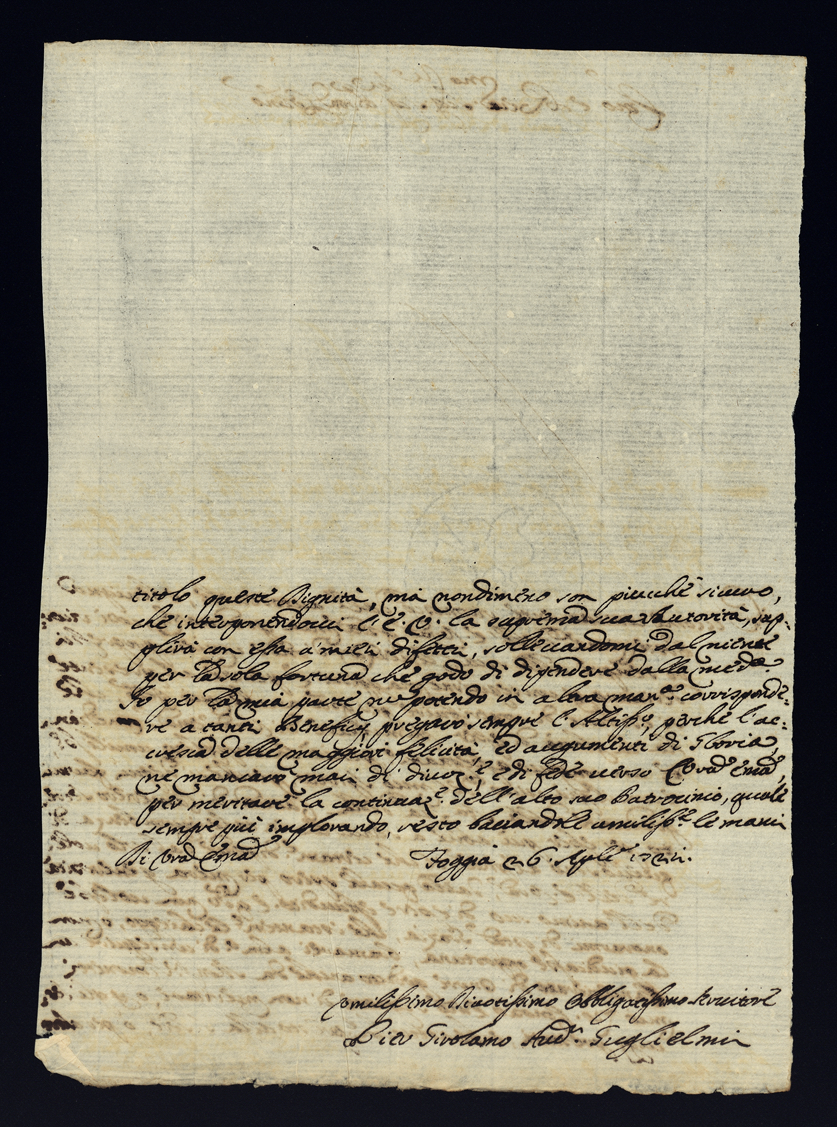 titolo queste Dignità, ma nondimeno son piucchè sicuro,
che interponendoci l'E. V. la suprema sua Autorità, sup-
plirà con essa a' miei difetti, sollevandomi dal niente
per la sola fortuna che godo di dipendere dalla med.a
Io per la mia parte n potendo in altra man.a corrisponde-
re a tanti Beneficj pregarò sempre l'Altiss.o, perchè l'ac-
cresca delle maggiori felicità, ed augumenti di Gloria,
ne mancarò mai di divoz.e, e di fede verso Vra Ema,
per meritare la continuaz.e dell'alto suo Patrocinio, quale
sempre più implorando, resto baciandole umiliss.te le mani
Di Vra Ema Foggia 26. Aple
Umilissimo Divotissimo Obbligatissimo Servitore
Pier Girolamo Guglielmi